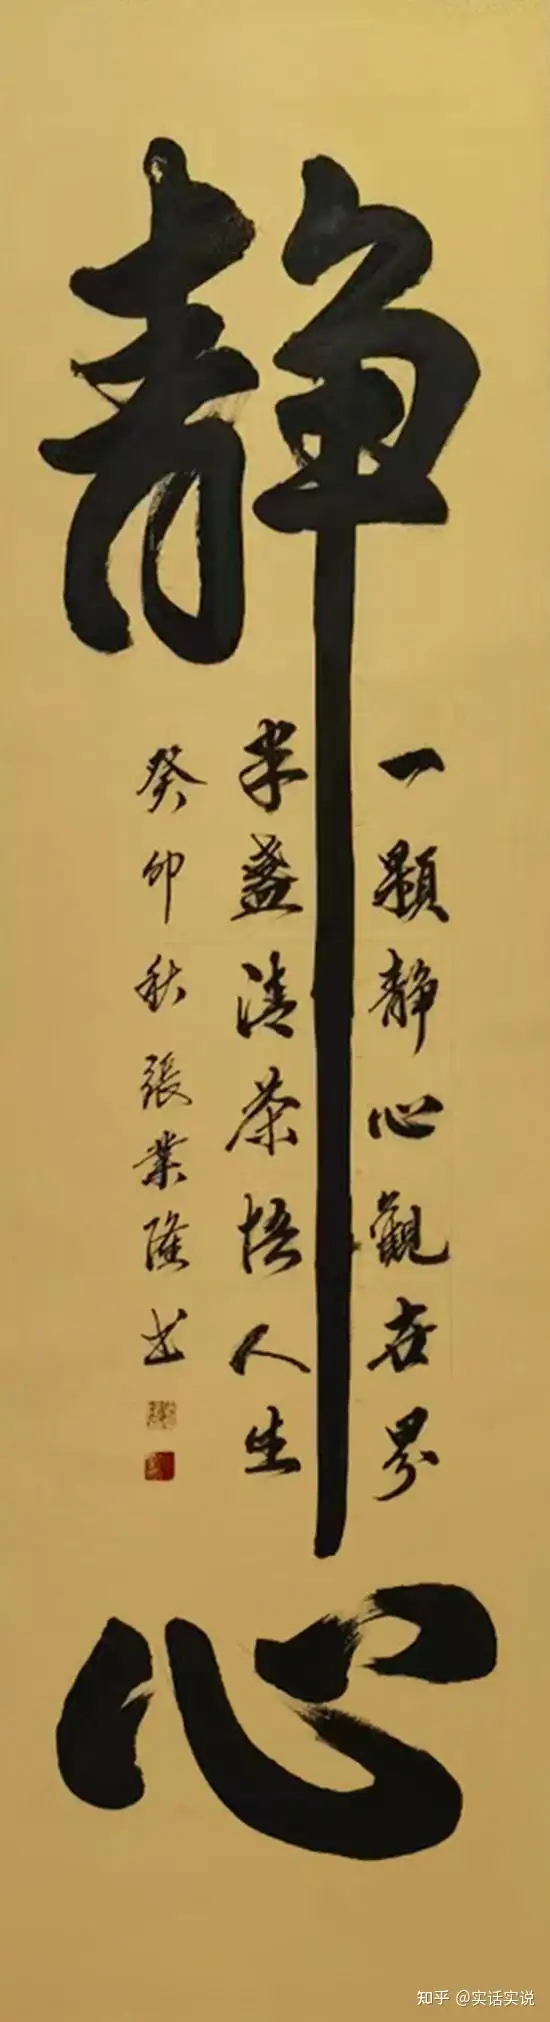 静心
一顆静心觀世界
半盞清茶悟人生
癸卯秋張業隆书
知乎 @实话实说